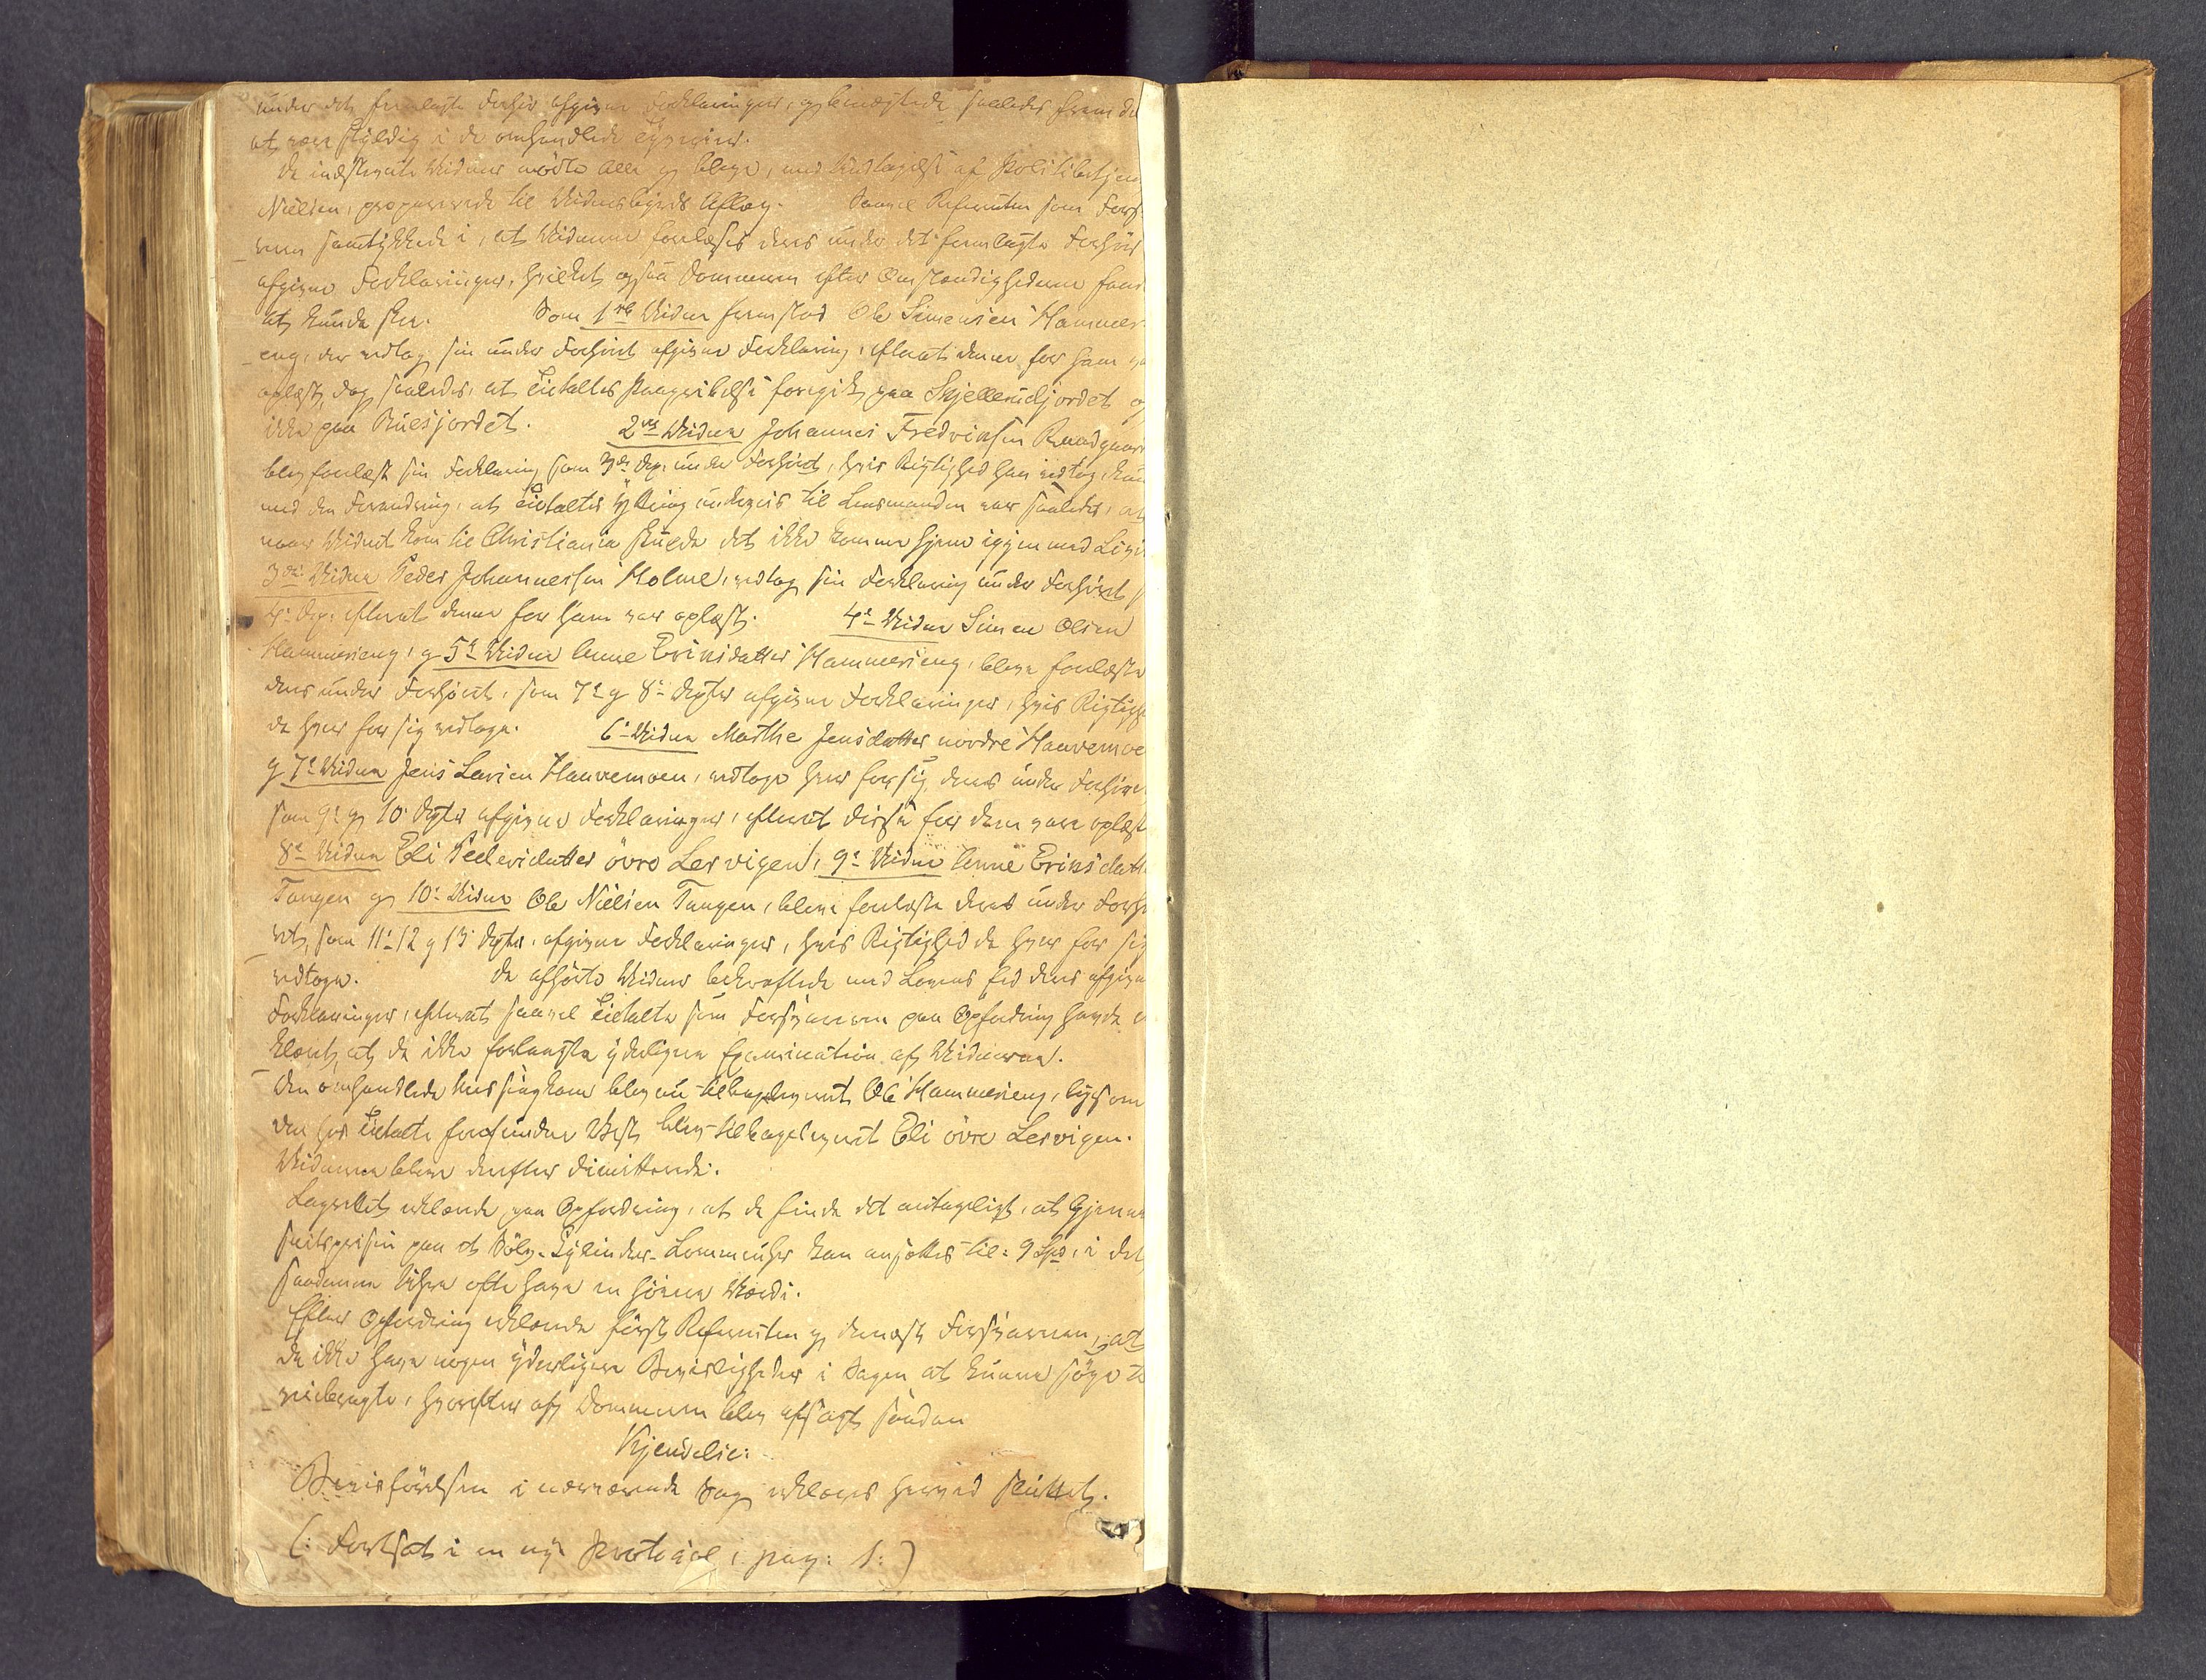 under det fremlagte Forhør afgivne Forklaringer, og benægtede saaledes frem de
at være skyldig i de omhandlede Tyverier.
De indstevnte Vidner mødte alle og bleve, med Undtagelse af Politibetjen
Nielsen, præparerede til Vidnesbyrds Aflæg. Saavel Referenten som Fors
veren samtykkede i, at Vidnerne forelæses deres under det fremlagte Forhør
afgivne Forklaringer, hvilket ogsaa Dommeren efter Omstændighederne fand
at kunde skee. Som 1ste Vidne fremstod Ole Simensen Hammers
eng, der vedtog sin under Forhøret afgivne Forklaring, efterat denne for ham var
oplæst, dog saaledes, at Tiltaltes Paagribelse foregik paa Skjellerudjordet og
ikke paa Ruesjordet. 2det Vidne Johannes Fredriksen
blev forelæst sin Forklaring som 3die Dep. under Forhøret, hvis Rigtighed han vedtog, kun
med den Forandring, at Tiltaltes Yttring underveis til Lensmanden var saaledes, at
naar Vidnet kom til Christiania skulde det ikke komme hjem igjen med Livet
3die Vidne Peder Johannessen Holme, vedtog sin Forklaring under Forhøret s
4de Dep. efterat denne for ham var oplæst. 4de Vidne Simen Olsen
Hammerseng, og 5te Vidne Anne Eriksdatter Hammerseng, bleve forelæste
deres under Forhøret, som 7de og 8de Depter afgivne Forklaringer, hvis Rigtighe
de hver for sig vedtoge. 6te Vidne Marthe Jensdatter nordre Haavemoe
og 7de Vidne Jens Larsen Haavemoen, vedtoge hver for sig, deres under Forhøre
som 9de og 10de Depter afgivne Forklaringer, efterat disse for dem vare oplæst
8de Vidne Eli Pedersdatter øvre Lervigen, 9de Vidne Anne Eriksdatt
Tangen og 10de Vidne Ole Nielsen Tangen, bleve forelæste deres under Forhø
ret, som 11te 12 og 13de Depter, afgivne Forklaringer, hvis Rigtighed de hver for sig
vedtoge. De afhørte Vidner bekræftede med Lovens Eed deres afgivn
Forklaringer, efterat saavel Tiltalte som Forsvareren paa Opfordring havde er
klæret, at de ikke forlangte yderligere Examination af Vidnerne.
Den omhandlede Messingkam blev nu tilbageleveret Ole Hammerseng, ligesom
den hos Tiltalte forefundne Vest blev tilbageleveret Eli øvre Lervigen.
Vidnerne bleve derefter dimitterede.
Lagrettet erklærede paa Opfordring, at de finde det antageligt, at Gjennem
snitsprisen paa et Sølv-Cylinder-Lommeuhr kan ansættes til: 9 Spd, i det
saadanne Uhre ofte have en høiere Værdi.
Efter Opfordring erklærede først Referenten og dernæst Forsvareren, at
de ikke have nogen yderligere Bevisligheder i Sagen at kunne søge t
veiebragte, hvorefter af Dommeren blev afsagt saadan
Kjendelse:
Bevisførelsen i nærværende Sag erklæres herved sluttet.
(: Fortsat i en ny Protocol, pag: 1:)